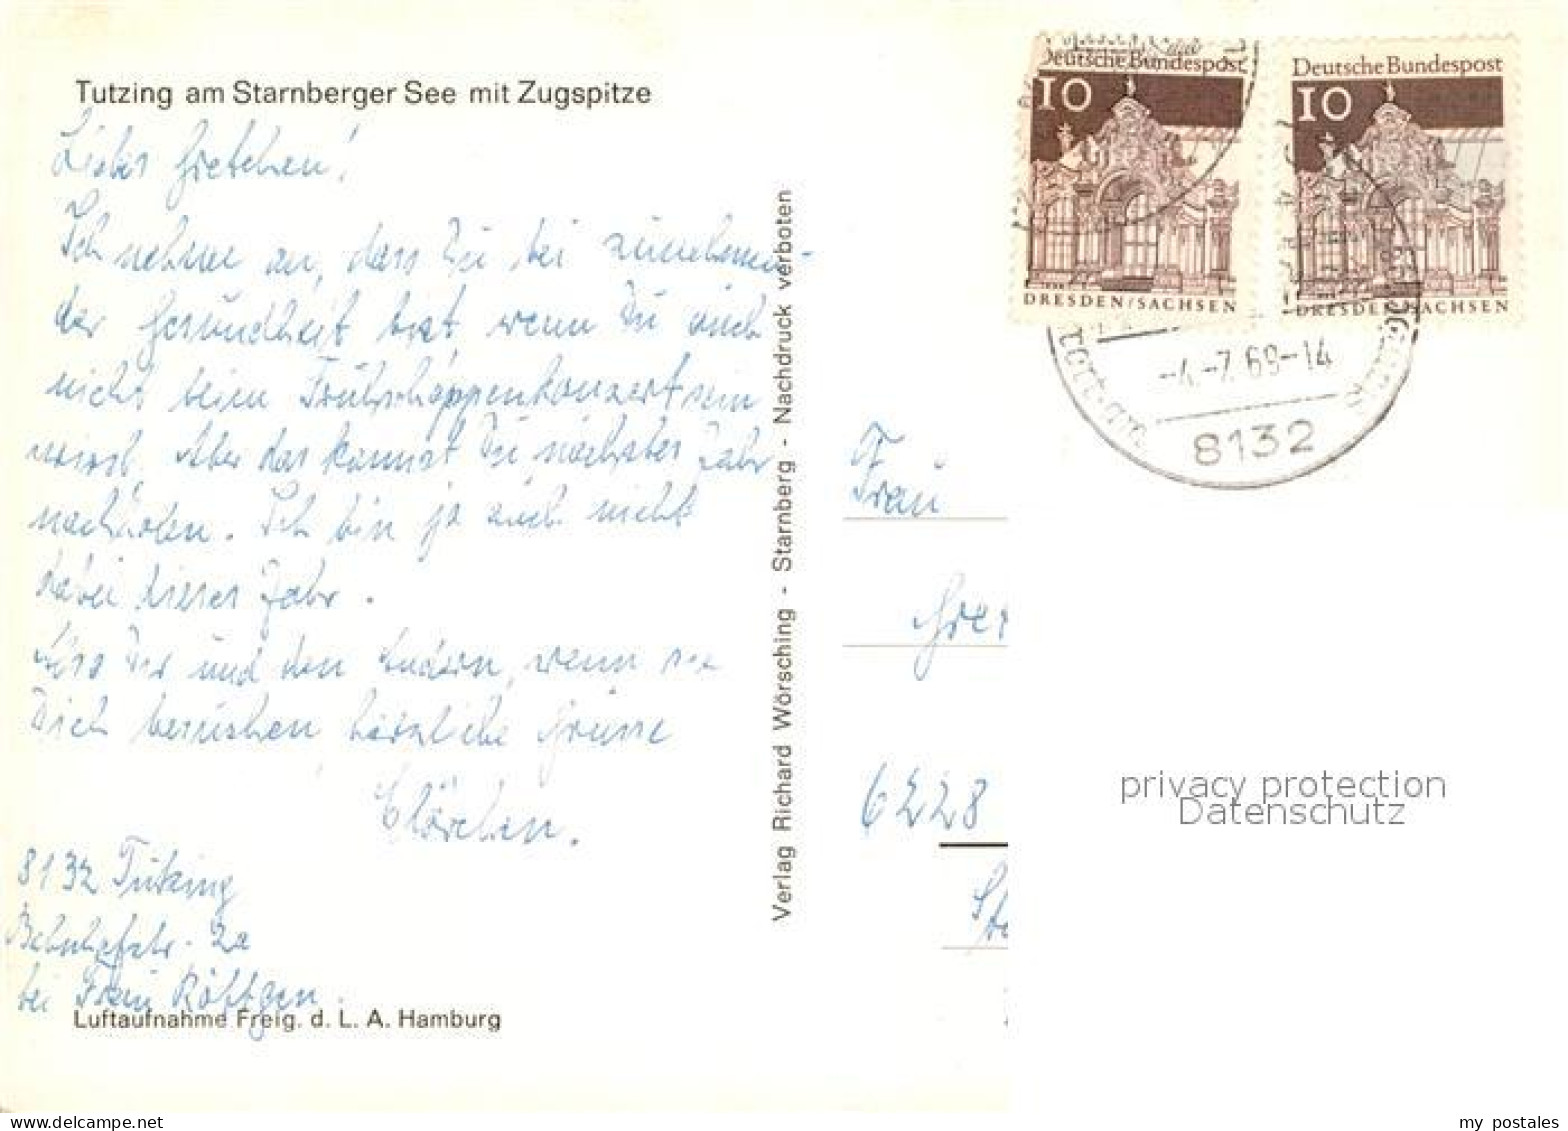 Tutzing am Starnberger See mit Zugspitze
Liebes Gretchen!
Ich nehme an, dass Du bei zunehmen-
der Gesundheit bist wenn Du auch
nicht beim Frühschoppenkonzert sein
wirst. Aber das kannst Du nächstes Jahr
nachholen. Ich bin ja auch nicht
dabei dieses Jahr.
Also Dir und den andern, wenn sie
Dich besuchen herzliche Grüsse
Clärchen.
8132 Tutzing
Bahnhofstr. 2a
bei Frau Röttgen.
Luftaufnahme Freig. d. L. A. Hamburg
Verlag Richard Wörsching - Starnberg - Nachdruck verboten
Deutsche Bundespost
10
DRESDEN/SACHSEN
Deutsche Bundespost
10
DRESDEN/SACHSEN
-4.-7.68-14
8132
Frau
6228
privacy protection
Datenschutz
my postales